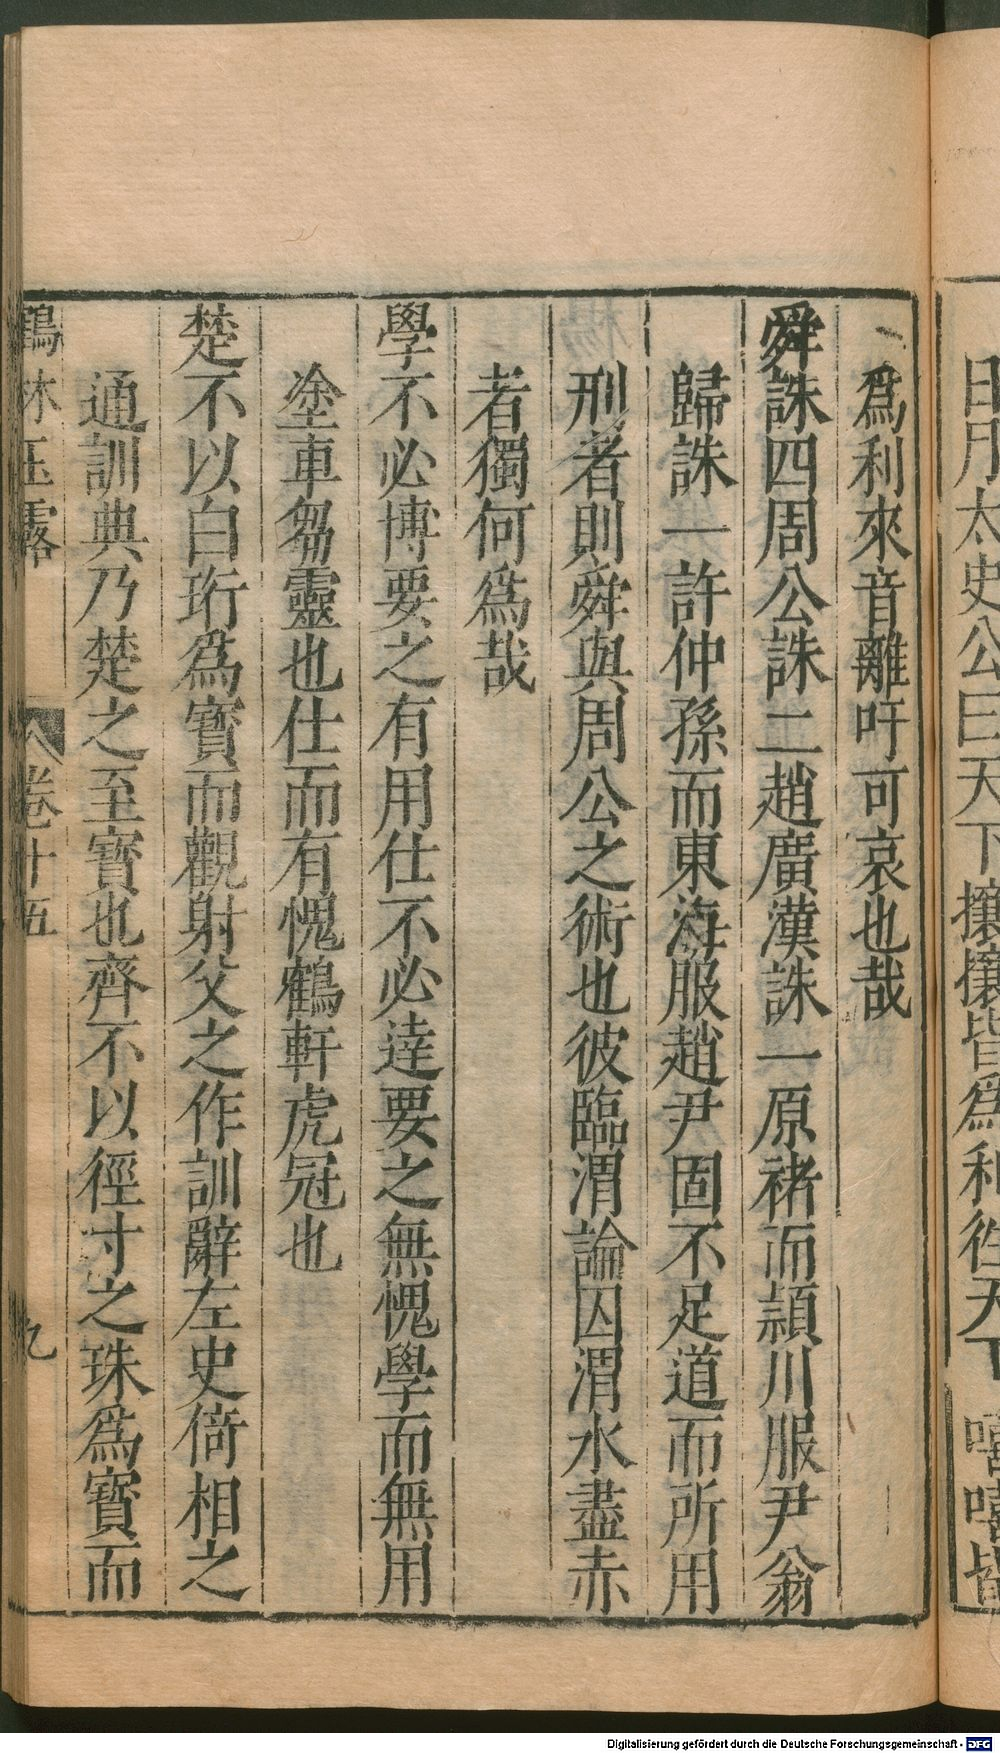 日月太史公曰天下攘攘皆爲利徃天下 嘻嘻皆
爲利來音離吁可哀也哉
舜誅四周公誅二趙廣漢誅一原褚而頴川服尹翁
歸誅一許仲孫而東海服趙尹固不足道而所用
刑者則舜與周公之術也彼臨渭論囚渭水盡赤
者獨何爲哉
學不必博要之有用仕不必逹要之無愧學而無用
塗車芻靈也仕而有愧鶴軒虎冠也
楚不以白珩爲寳而觀射父之作訓辭左史倚相之
通訓典乃楚之至寳也齊不以徑寸之珠爲寳而
鶴林玉露 卷十五 九
Digitalisierung gefördert durch die Deutsche Forschungsgemeinschaft - DFG